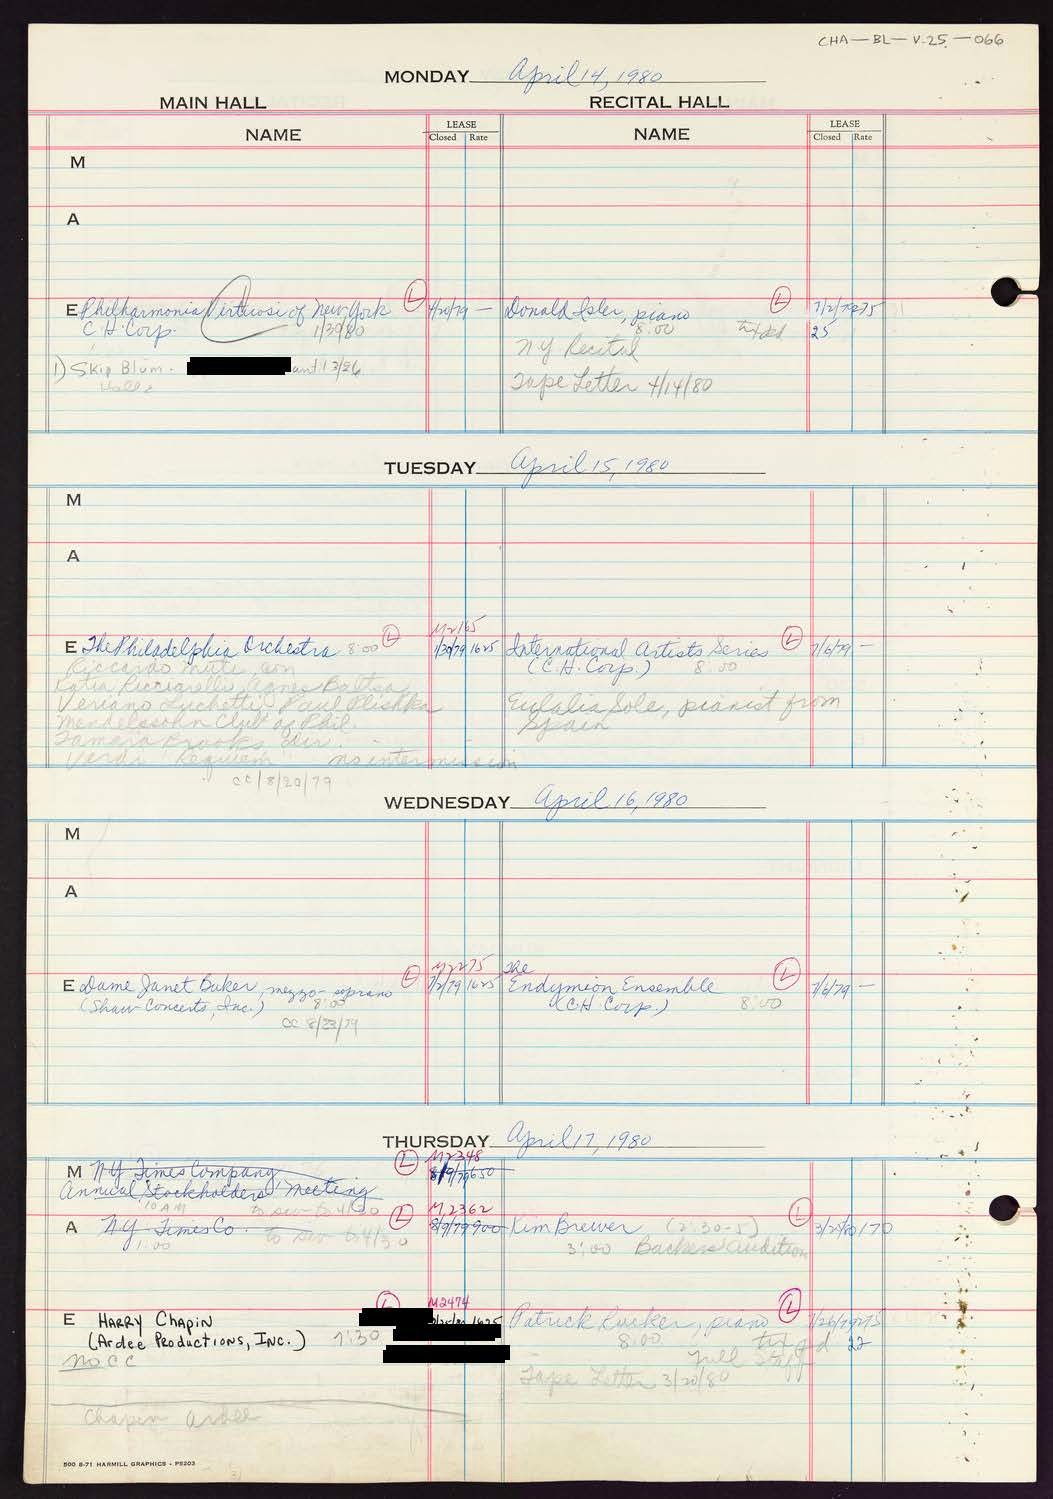 CHA-BL-V-25-066
MONDAY April 14, 1980
MAIN HALL RECITAL HALL
NAME LEASE Closed Rate NAME LEASE Closed Rate
M
A
E Philharmonia Virtuosi of New York L 4/20/79 — Donald Isler, piano L 7/2/79 275
C.H. Corp. 1/30/80 8:00 txt pd 25
NY Recital
1) Skip Blum - until 3/26
Tape Letter 4/14/80
TUESDAY April 15, 1980
M
A
M2165
E The Philadelphia Orchestra 8:00 L 1/30/79 1625 International Artists Series L 7/6/79 —
Riccardo Muti, con (C.H. Corp.) 8:00
Katia Ricciarelli, Agnes Baltsa
Veriano Luchetti, Paul Plishka Eulalia Sole, pianist from
Mendelssohn Club of Phil. Spain
Tamara Brooks, dir.
Verdi "Requiem" no intermission
CC/8/20/79
WEDNESDAY April 16, 1980
M
A
M2275 The
E Dame Janet Baker, mezzo-soprano L 7/2/79 1625 Endymion Ensemble L 7/6/79 —
(Shaw Concerts, Inc.) 8:00 (C.H. Corp.) 8:00
CC 8/23/79
THURSDAY April 17, 1980
M2348
M NY Times Company L 8/9/79 650
Annual Stockholders' Meeting
10 AM to sev to 4/30 M2362
A NY Times Co. L 8/9/79 900 Kim Brewer (2:30-5) L 3/28/80 170
1:00 to sev to 4/30 3:00 Backers' Audition
M2474
E HARRY CHAPIN L 1625 Patrick Rucker, piano L 1/26/79 275
(Ardee Productions, Inc.) 7:30 8:00 txt pd 22
No CC full staff
Tape Letter 3/20/80
Chapin Ardee
500 8-71 HARMILL GRAPHICS - P5203